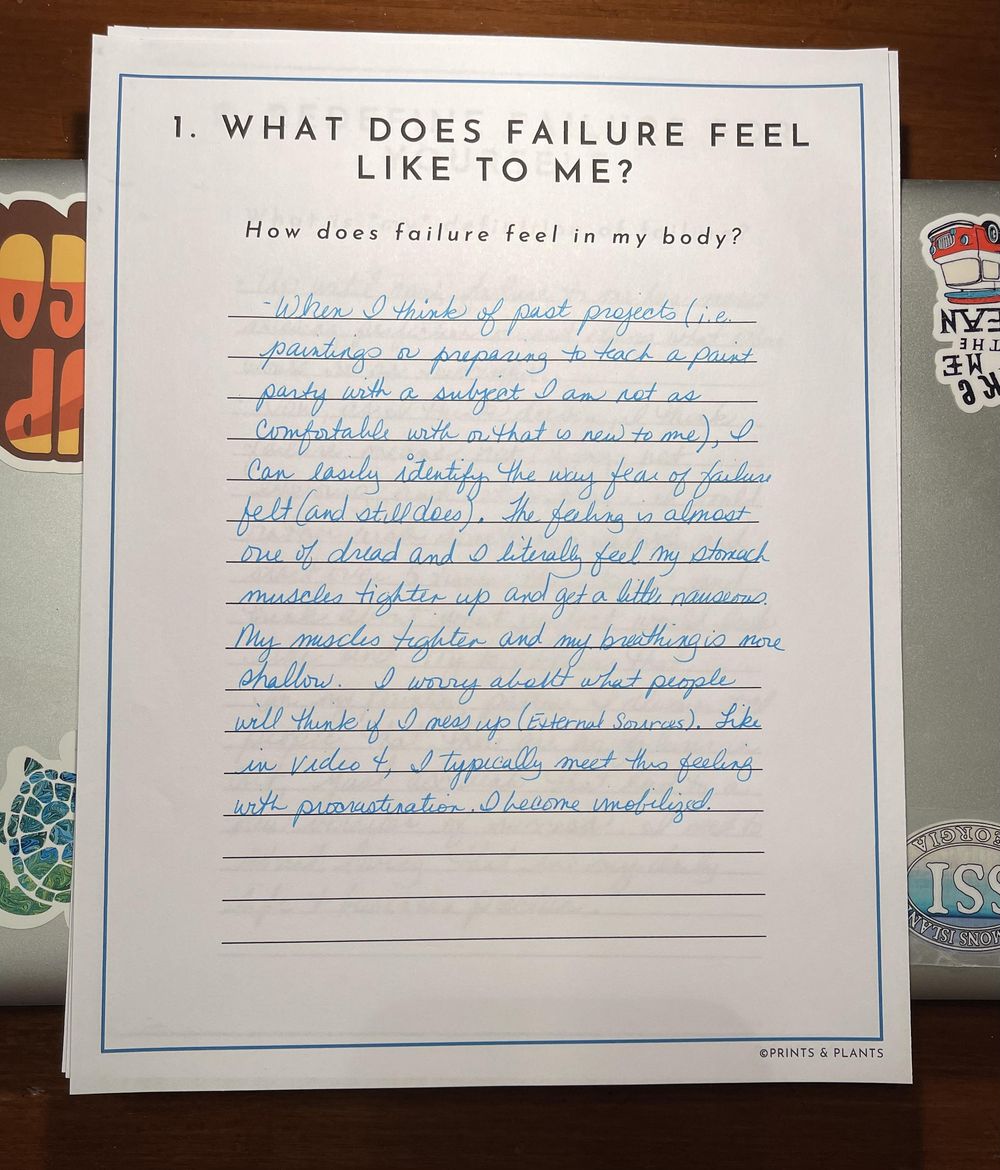 1. WHAT DOES FAILURE FEEL
LIKE TO ME?
How does failure feel in my body?
-When I think of past projects (i.e.
paintings or preparing to teach a paint
party with a subject I am not as
comfortable with or that is new to me), I
can easily identify the way fear of failure
felt (and still does). The feeling is almost
one of dread and I literally feel my stomach
muscles tighten up and get a little nauseous.
My muscles tighten and my breathing is more
shallow. I worry about what people
will think if I mess up (External Sources). Like
in video 4, I typically meet this feeling
with procrastination. I become imobilized.
©PRINTS & PLANTS
UP
THE
ME
GEORGIA
SSI